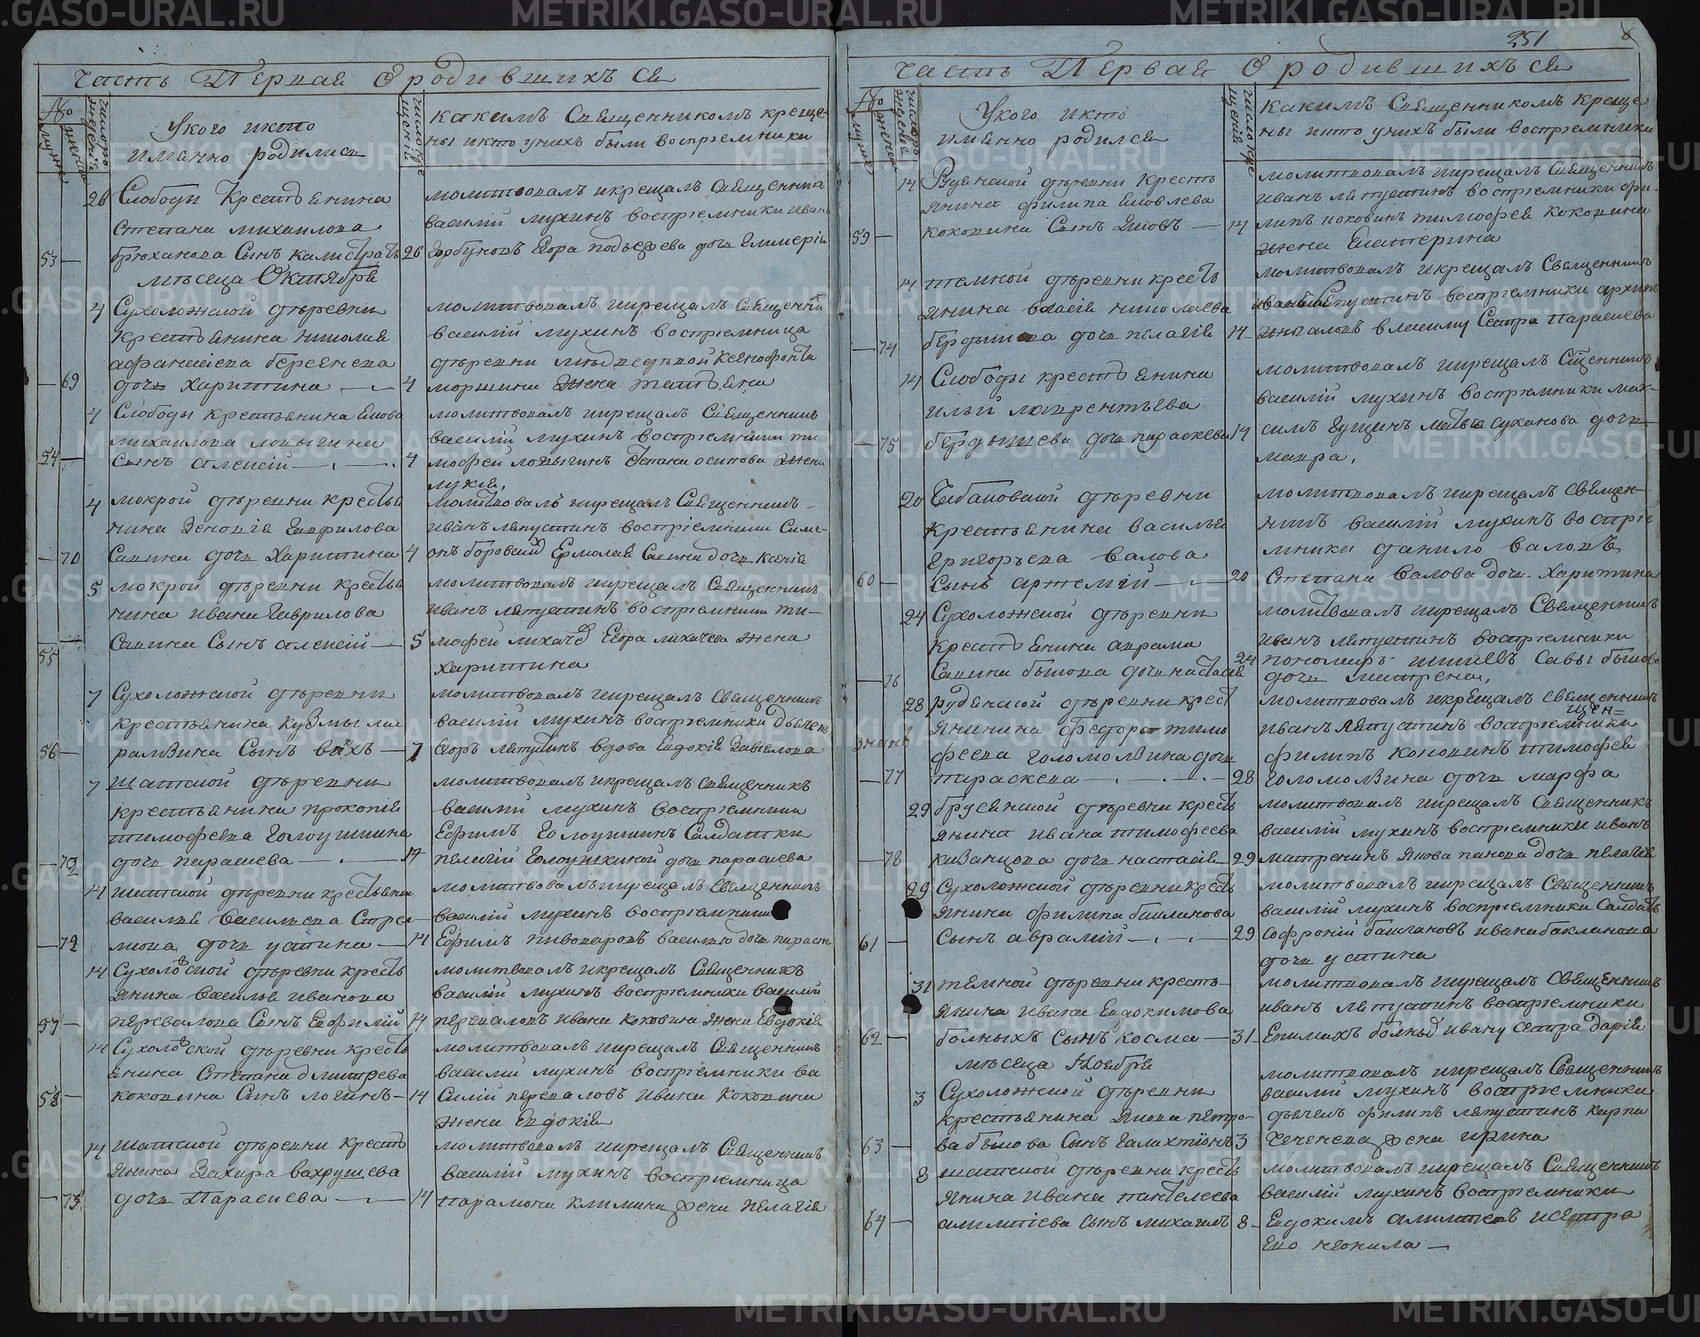 251
Часть Первая О родившихъся
У кого и кто
имянно родился
какимъ Священникомъ креще-
ны и кто у нихъ были восприемники
26 Слободы Крестьянина
Степана михаилова
53 брюханова Сынъ Калистратъ 26
молитвовалъ и крещалъ Священникъ
василий мухинъ восприемники иванъ
горбуновъ Егора подъезева дочь Гликерия
месяца Октября
4 Сухоложской деревни
крестьянина николая
афанасиева берсенева
69 дочь Харитина 4
молитвовалъ и крещалъ Священникъ
василий мухинъ восприемница
деревни медведевой ксенофонта
моршина жена татьяна
4 Слободы крестьянина Якова
михаилова
54 Сынъ алексей 4
молитвовалъ и крещалъ Священникъ
василий мухинъ восприемники ти-
мофей Степана осипова жена
лукия,
4 мокрой деревни крестья
нина Зеновия Гаврилова
70 Савина дочь Харитина 4
молитвовалъ и крещалъ Священникъ
иванъ ляпустинъ восприемники Симе-
онъ боровский Ермолая Савина дочь Ксения
5 мокрой деревни крестья
нина ивана Гаврилова
55 Савина Сынъ алексей 5
молитвовалъ и крещалъ Священникъ
иванъ ляпустинъ восприемники ти-
мофей лихачев Егора лихачева жена
Харитина
7 Сухоложской деревни
крестьянина Кузмы
56 Сынъ 7
молитвовалъ и крещалъ Священникъ
василий мухинъ восприемники дьячекъ
Егоръ ляпустинъ вдова Евдокия
7 Шатской деревни
крестьянина прокопия
тимофеева Голоушкина
дочь парасиева
молитвовалъ и крещалъ Священникъ
василий мухинъ восприемники
Ефимъ Голоушкинъ Салдатки
пелагии Голоушкиной дочь парасиева
14 шатской деревни крестьяни
василья васильева
дочь устина 14
молитвовалъ и крещалъ Священникъ
василий мухинъ восприемники
Ефимъ пивоваровъ дочь
14 Сухоложской деревни кресть
янина василья иванова
57 перевалова Сынъ 14
молитвовалъ и крещалъ Священникъ
василий мухинъ восприемники василий
переваловъ ивана коковина жена Евдокия
14 Сухоложской деревни кресть
янина Степана дмитрева
58 коковина Сынъ логинъ 14
молитвовалъ и крещалъ Священникъ
василий мухинъ восприемники ва
силий переваловъ ивана коковина
жена Евдокия
14 Шатской деревни кресть
янина Захара вахрушева
73 дочь Парасиева 14
молитвовалъ и крещалъ Священникъ
василий мухинъ восприемница
парамона климина жена пелагия
Часть Первая О родившихъся
У кого и кто
имянно родился
какимъ Священникомъ креще
ны и кто у нихъ были восприемники
14 Рудянской деревни Кресть
янина филипа Яковлева
59 коковина Сынъ Яковъ 14
молитвовалъ и крещалъ Священникъ
иванъ ляпустинъ восприемники фи-
липъ коковинъ тимофея коковина
жена Екатерина
14 темной деревни кресть
янина власия николаева
74 дочь пелагия 14
молитвовалъ и крещалъ Священникъ
иванъ ляпустинъ восприемники
Сестра Парасиева
14 Слободы крестьянина
ильи лаврентьева
75 бердышева дочь параскева 14
молитвовалъ и крещалъ Священникъ
василий мухинъ восприемники мак-
симъ гущинъ суханова дочь
мавра,
20 деревни
Крестьянина василья
григорьева валова
60 Сынъ артемий 20
молитвовалъ и крещалъ Священ-
никъ василий мухинъ восприе
мники данило валовъ
Степана валова дочь Харитина
24 Сухоложской деревни
крестьянина аврама
76 Савина быкова дочь настасия 24
молитвовалъ и крещалъ Священникъ
иванъ ляпустинъ восприемники
пономарь Савы быкова
дочь матрена,
28 рудянской деревни крест
янина федора тимо
феева Голомолзина дочь
77 параскева 28
молитвовалъ и крещалъ священникъ
иванъ ляпустинъ восприемники
филипъ коковинъ тимофея
Голомолзина дочь марфа
29 деревни кресть
янина ивана тимофеева
78 казанцова дочь настасия 29
молитвовалъ и крещалъ Священникъ
василий мухинъ восприемники иванъ
Якова панова дочь пелагия
29 Сухоложской деревни кресть
янина филипа бакланова
61 Сынъ аврамий 29
молитвовалъ и крещалъ Священникъ
василий мухинъ восприемники Салдатъ
Софроний баклановъ ивана бакланова
дочь устина
31 темной деревни кресть-
янина ивана Евдокимова
62 больныхъ Сынъ косма 31
молитвовалъ и крещалъ Священникъ
иванъ ляпустинъ восприемники
ивану Сестра дария
месяца Ноября
3 Сухоложской деревни
крестьянина Якова петро-
63 ва быкова Сынъ Галахтионъ 3
молитвовалъ и крещалъ Священникъ
василий мухинъ восприемники
дьячекъ филипъ ляпустинъ карпа
жена ирина
8 шатской деревни кресть
янина ивана пантелеева
64 Сынъ михаилъ 8
молитвовалъ и крещалъ Священникъ
василий мухинъ восприемники
Евдокимъ и Сестра
его неонила
METRIKI.GASO-URAL.RU